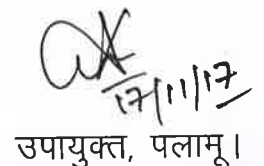 17/11/17
उपायुक्त, पलामू।